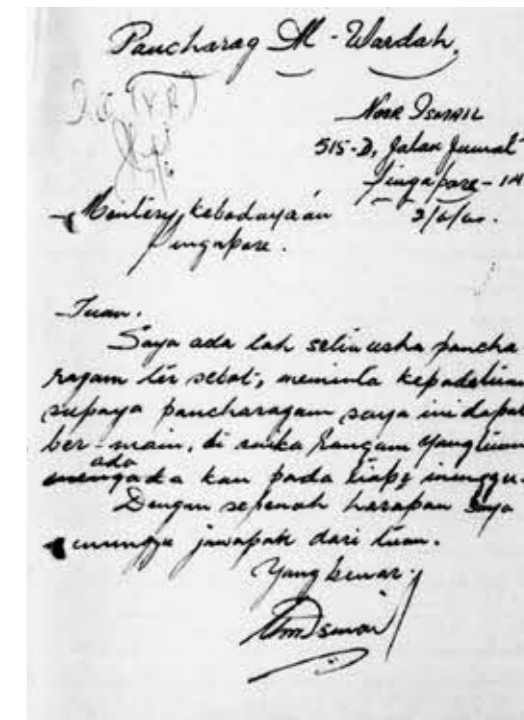 Pancharag Al-Wardah.
Noor Ismail
515-D, Jalan Jumat
Singapore-14
Mentery kebadayaän
3/6/60.
Singapore.
Tuan.
Saya ada lah setia usha pancha-
ragam ter sebot, meminta kepada tuan
supaya pancharagam saya ini dapat
ber-main, di aneka Ragam yang tuan
ada
mengada kan pada tiap2 minggu.
Dengan sepenoh harapan saya
menunggu jawapan dari tuan.
Yang benar.